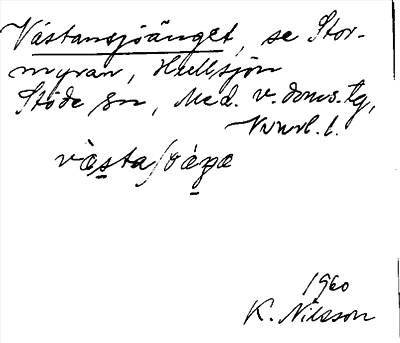 Västansjöänget, se Stor-
myran, Hullsjön
Stöde sn, Med. v. doms. tg,
Vnrl. l.
vàsta ʃöáŋə
1960
K. Nilsson